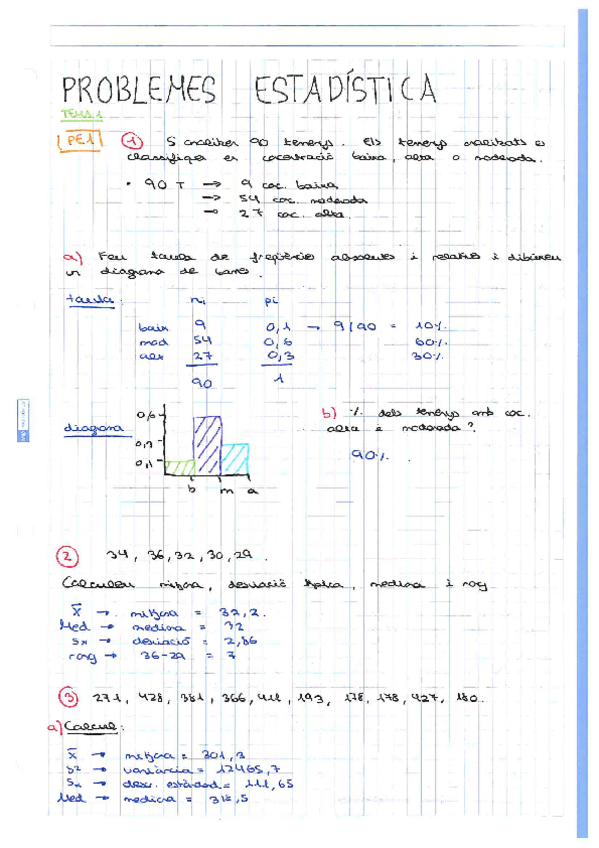 PROBLEMES ESTADÍSTICA
TEMA 1
PE1 1 S'analitzen 90 terrenys. Els terrenys analitzats es
classifiquen en concentració baixa, alta o moderada.
• 90 T → 9 coc. baixa
→ 54 coc. moderada
→ 27 coc. alta.
a) Feu taula de freqüències absolutes i relatives i dibuixeu
un diagrama de barres.
taula: ni pi
baix 9 0,1 → 9/90 = 10%
mod 54 0,6 60%
alt 27 0,3 30%
90 1
diagrama
0,6
0,3
0,1
b m a
b) % dels terrenys amb coc.
alta i moderada?
90%.
2 34, 36, 32, 30, 29.
Calculeu mitjana, desviació típica, mediana i rang
x̄ → mitjana = 32,2.
Med → mediana = 32
Sx → desviació = 2,86
rang → 36-29 = 7
3 271, 428, 381, 366, 412, 193, 178, 178, 427, 180.
a) Calcul:
x̄ → mitjana = 301,3
S² → variància = 12465,7
Sx → desv. estàndard = 111,65
Med → mediana = 318,5